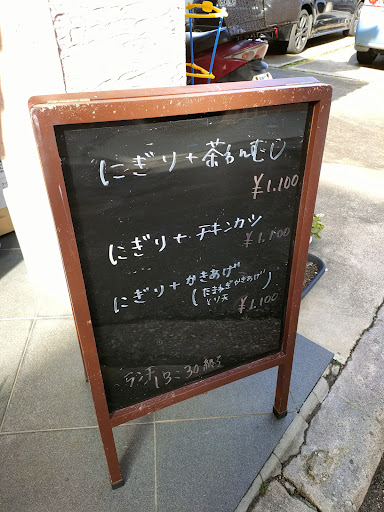 にぎり+茶わんむし
¥1.100
にぎり+チキンカツ
¥1.100
にぎり+かきあげ
(たまねぎかきあげ
とり天)
¥1.100
ランチ13:30終了